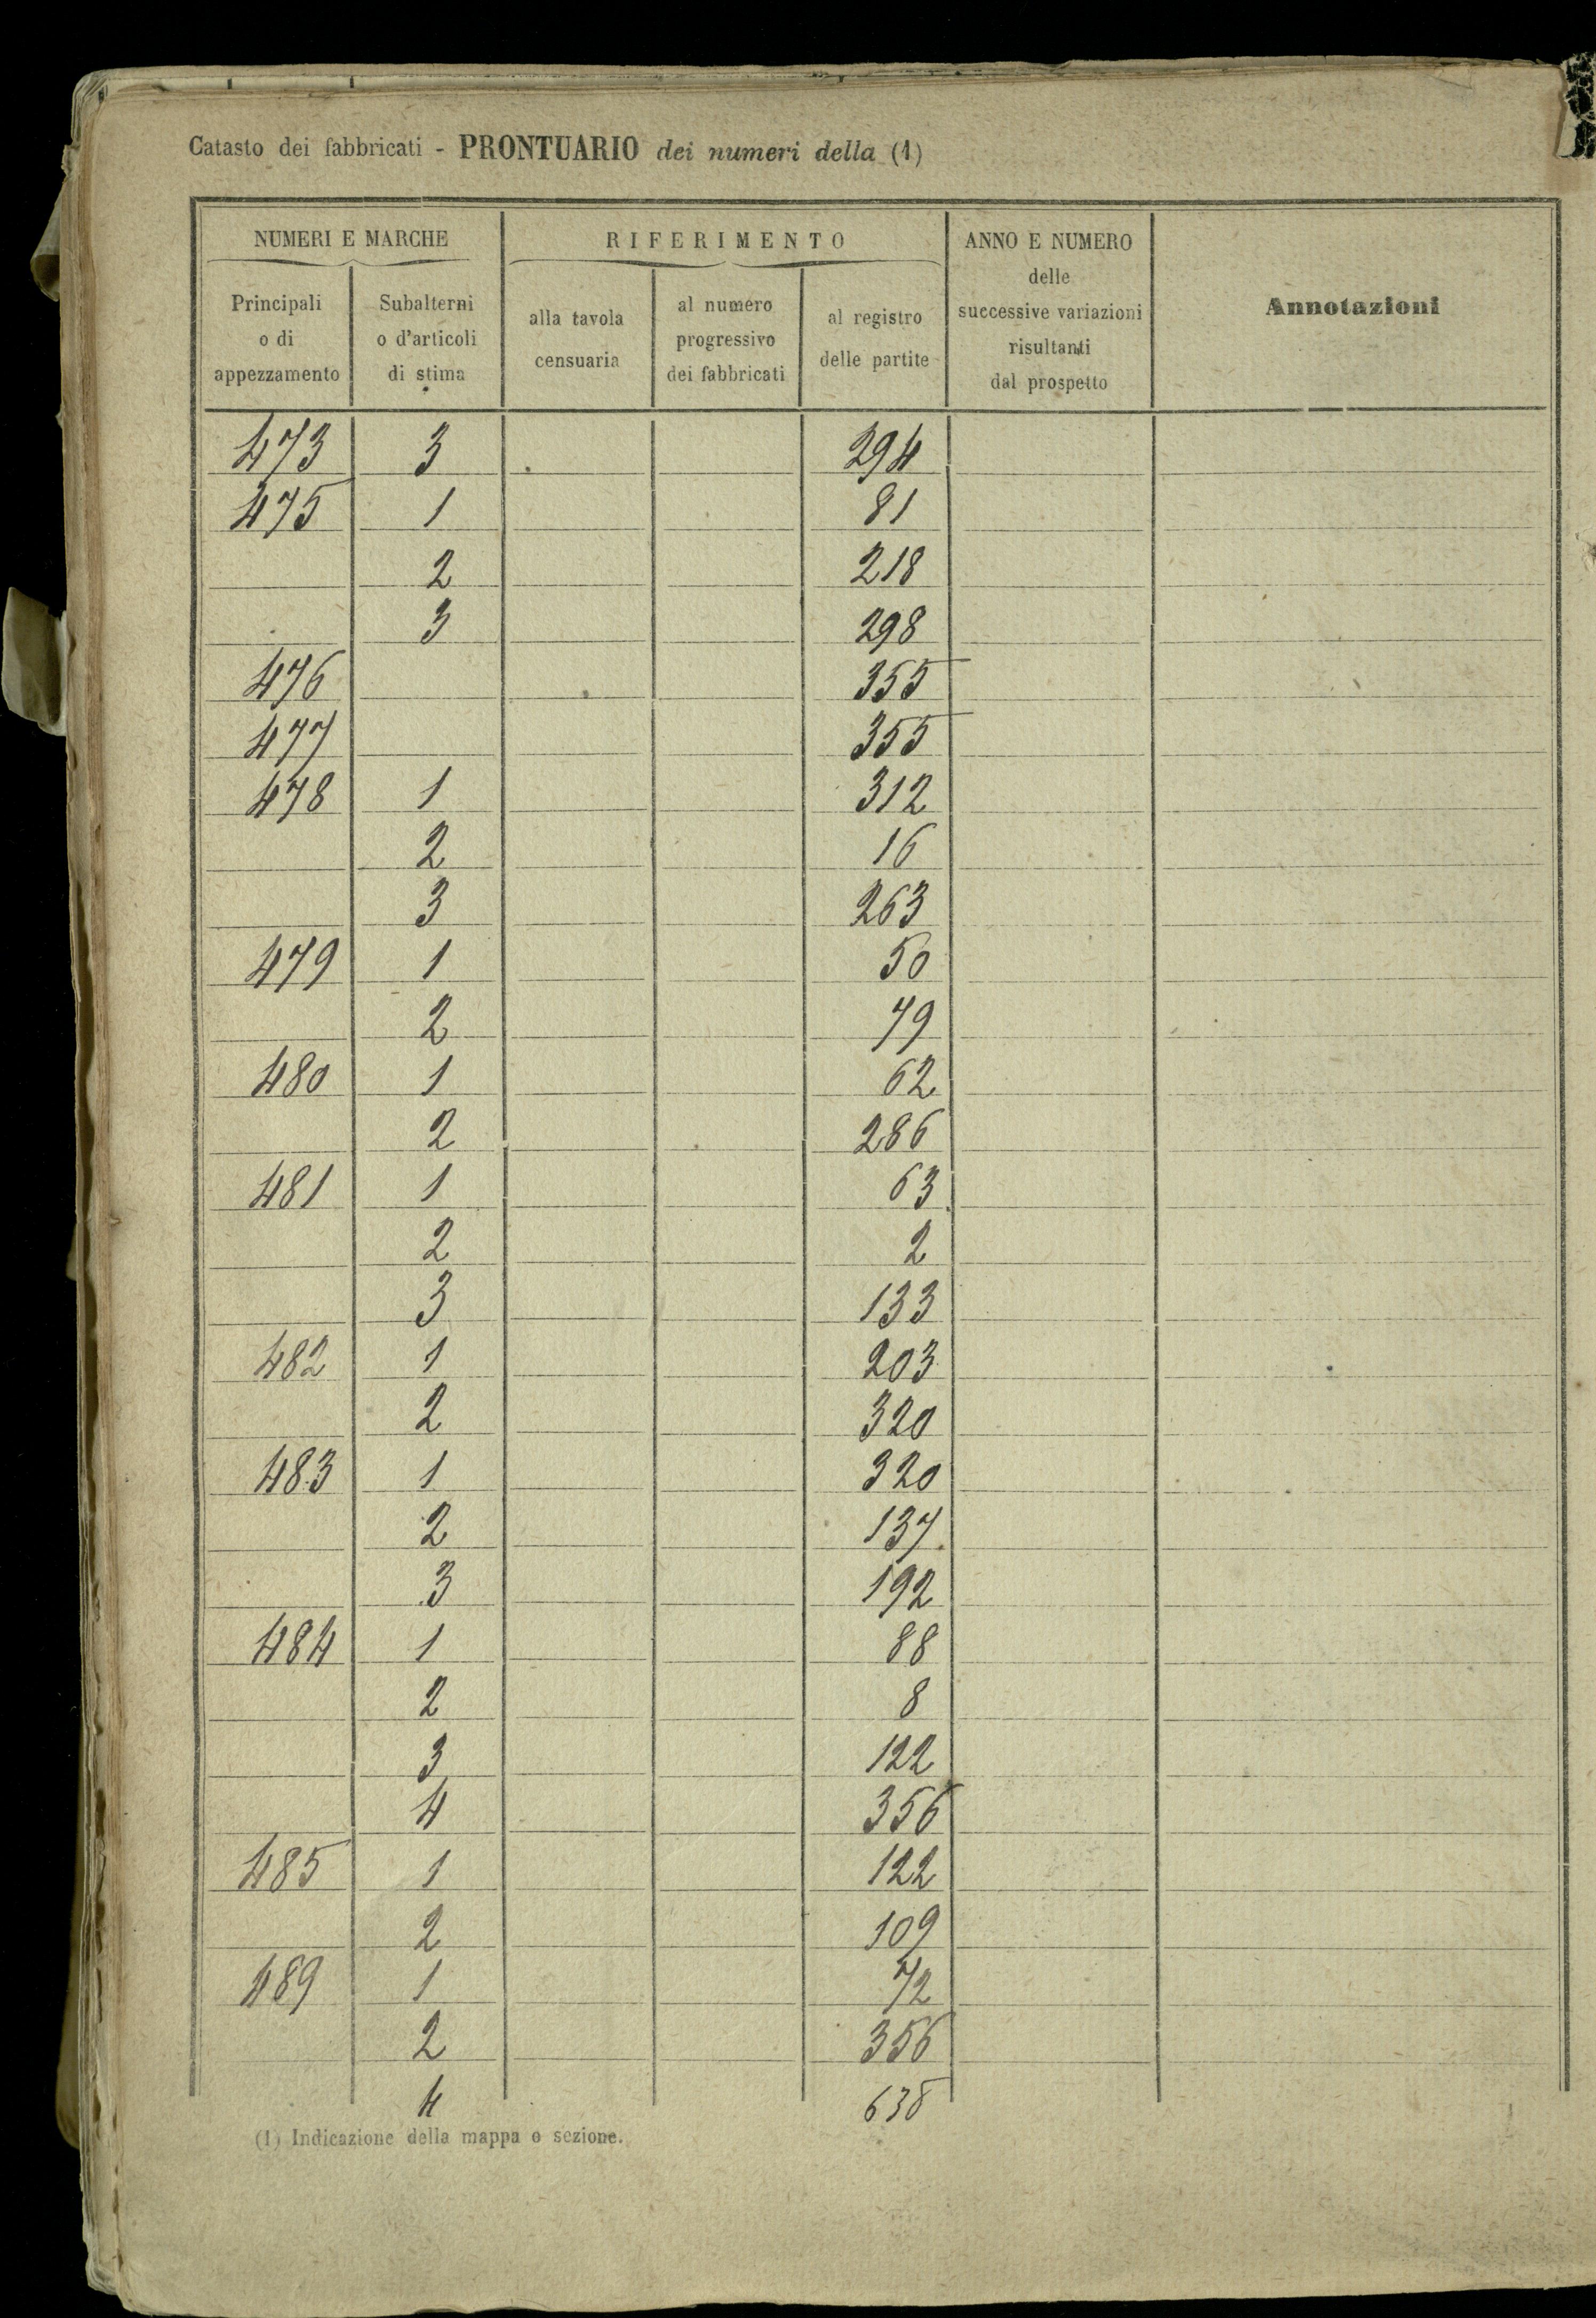 Catasto dei fabbricati - PRONTUARIO dei numeri della (1)
NUMERI E MARCHE
RIFERIMENTO
ANNO E NUMERO
delle
successive variazioni
risultanti
dal prospetto
Annotazioni
Principali
o di
appezzamento
Subalterni
o d'articoli
di stima
alla tavola
censuaria
al numero
progressivo
dei fabbricati
al registro
delle partite
473 3 294
475 1 81
2 218
3 298
476 355
477 355
478 1 312
2 16
3 263
479 1 50
2 79
480 1 62
2 286
481 1 63
2 2
3 133
482 1 203
2 320
483 1 320
2 137
3 192
484 1 88
2 8
3 122
4 356
485 1 122
2 109
489 1 72
2 356
4
(1) Indicazione della mappa o sezione.